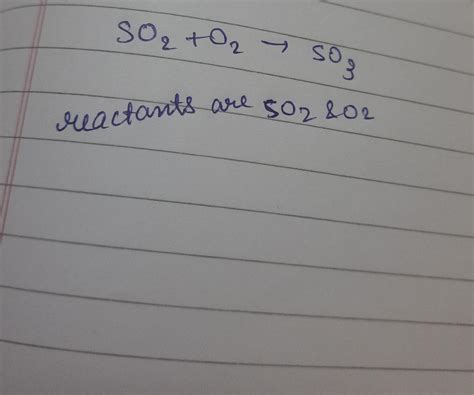 SO2 + O2 → SO3
reactants are SO2 & O2